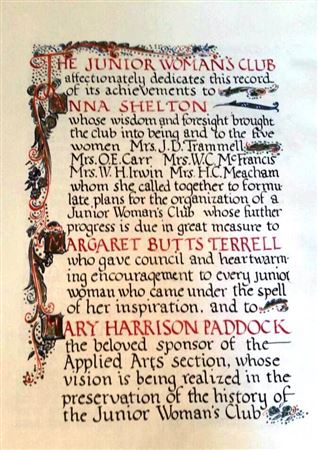 THE JUNIOR WOMAN'S CLUB
affectionately dedicates this record
of its achievements to
ANNA SHELTON
whose wisdom and foresight brought
the club into being and to the five
women Mrs. J.D. Trammell
Mrs. O.E. Carr Mrs. W.C. McFrancis
Mrs. W.H. Irwin Mrs. H.C. Meacham
whom she called together to formu-
late plans for the organization of a
Junior Woman's Club whose further
progress is due in great measure to
MARGARET BUTTS TERRELL
who gave council and heartwarm-
ing encouragement to every junior
woman who came under the spell
of her inspiration, and to
MARY HARRISON PADDOCK
the beloved sponsor of the
Applied Arts section, whose
vision is being realized in the
preservation of the history of
the Junior Woman's Club